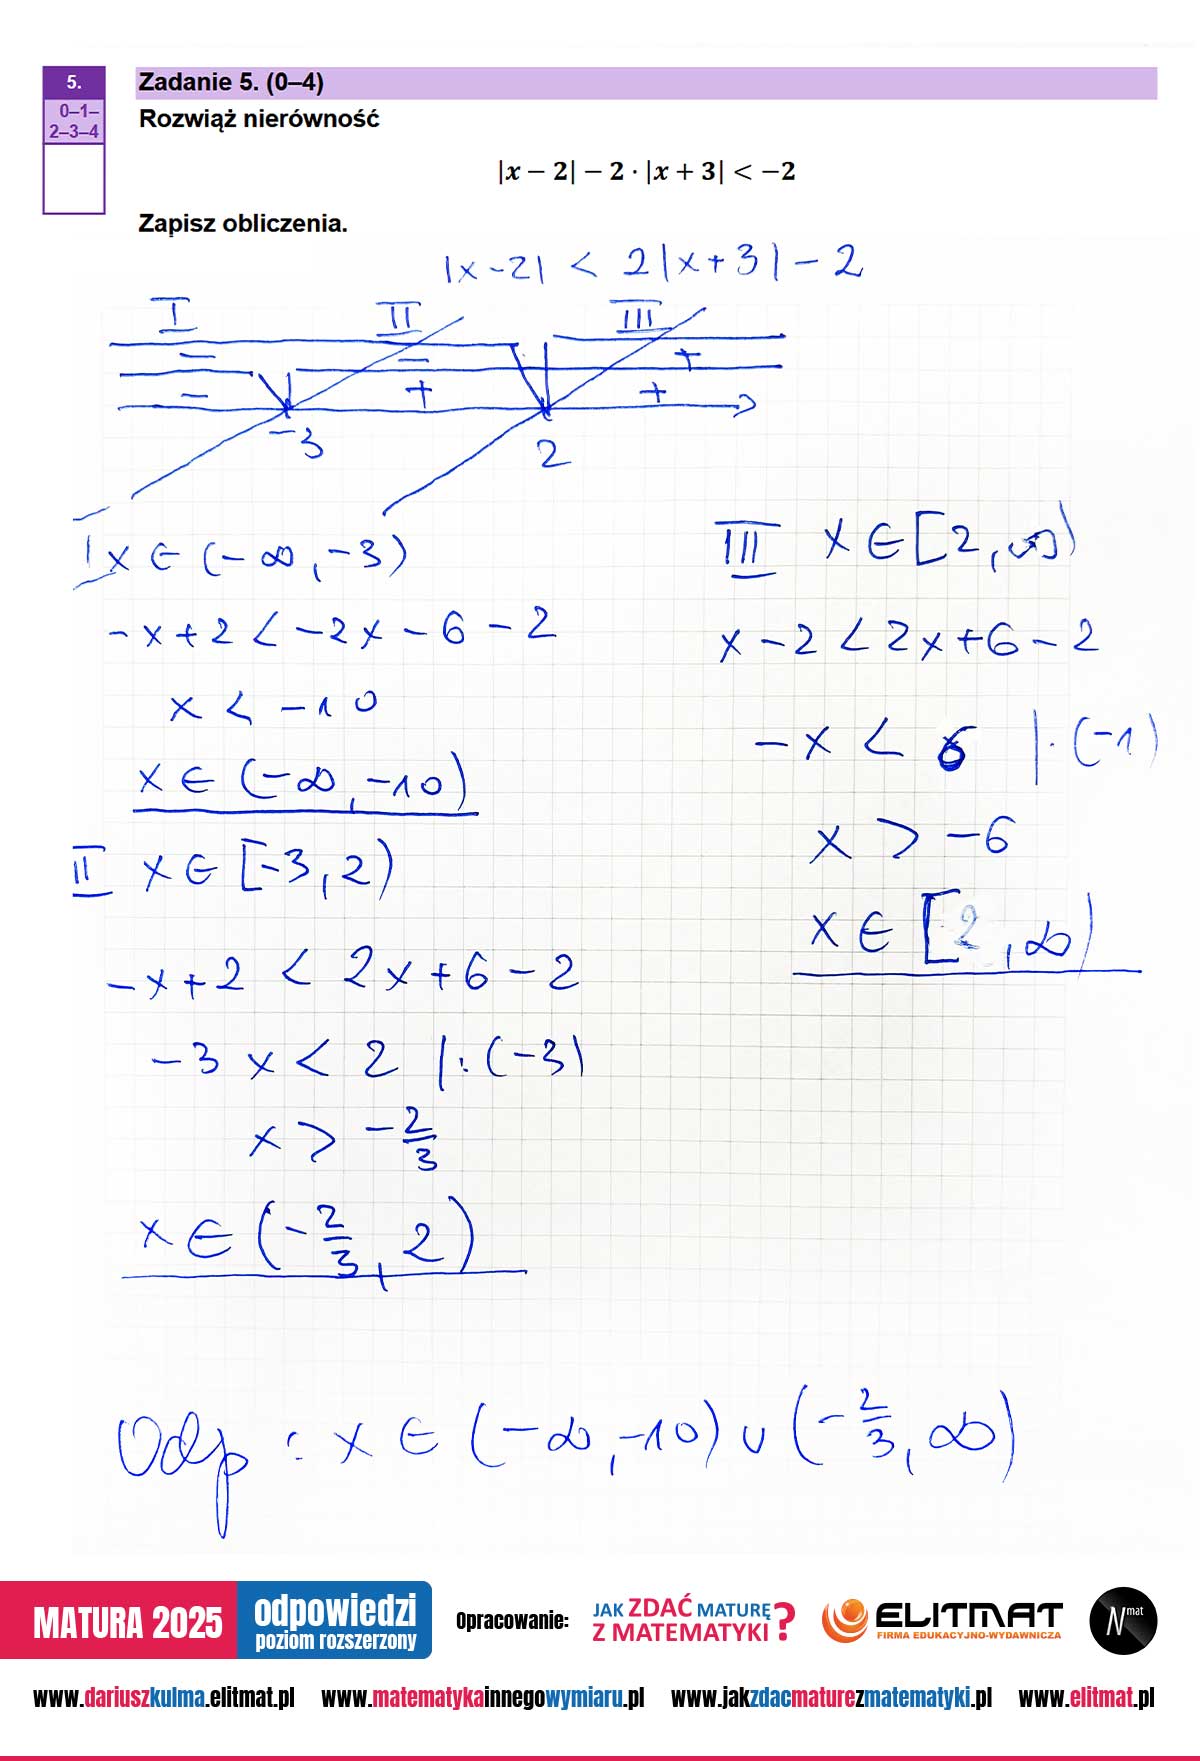 5.
0–1–
2–3–4
Zadanie 5. (0–4)
Rozwiąż nierówność
|x − 2| − 2 · |x + 3| < −2
Zapisz obliczenia.
|x - 2| < 2|x + 3| - 2
I II III
− − +
− + +
-3 2
I x ∈ (-∞, -3)
-x + 2 < -2x - 6 - 2
x < -10
x ∈ (-∞, -10)
II x ∈ [-3, 2)
-x + 2 < 2x + 6 - 2
-3x < 2 |: (-3)
x > -2/3
x ∈ (-2/3, 2)
III x ∈ [2, ∞)
x - 2 < 2x + 6 - 2
-x < 6 |· (-1)
x > -6
x ∈ [2, ∞)
Odp : x ∈ (-∞, -10) ∪ (-2/3, ∞)
MATURA 2025
odpowiedzi
poziom rozszerzony
Opracowanie:
JAK ZDAĆ MATURĘ
Z MATEMATYKI?
ELITMAT
FIRMA EDUKACYJNO-WYDAWNICZA
Nmat
www.dariuszkulma.elitmat.pl www.matematykainnegowymiaru.pl www.jakzdacmaturezmatematyki.pl www.elitmat.pl